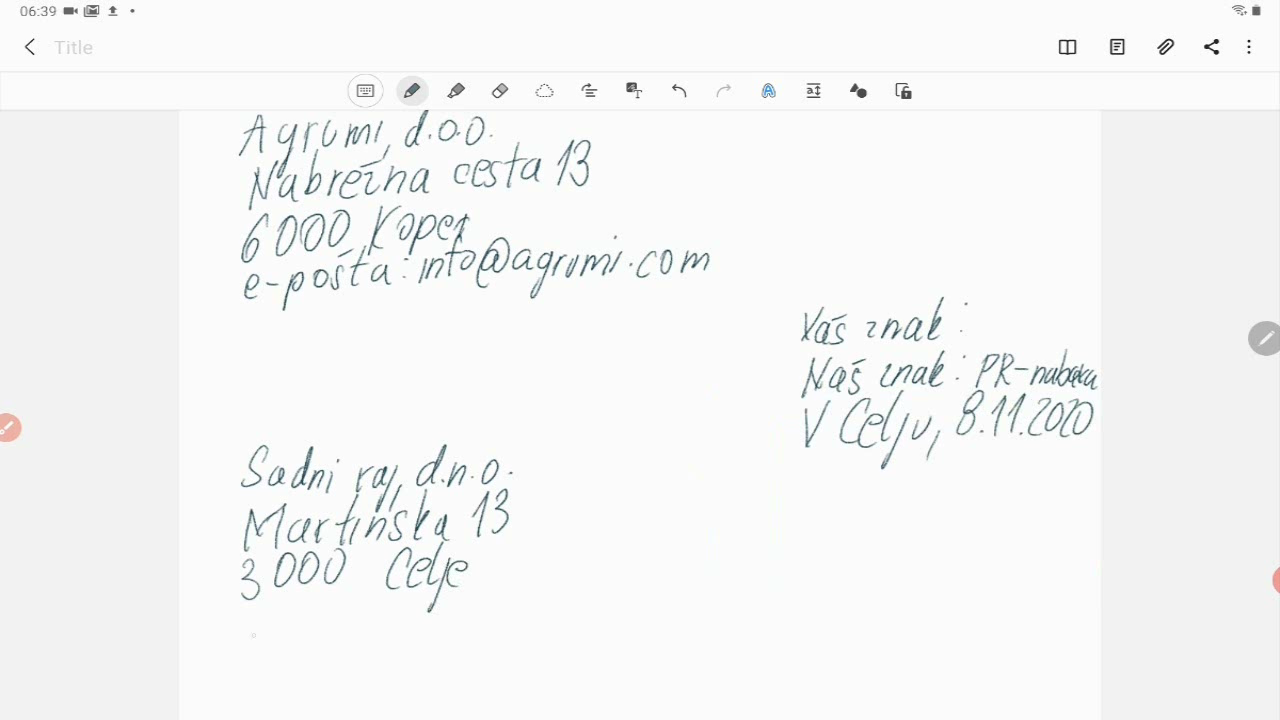 06:39
Title
Agrumi, d.o.o.
Nabrežna cesta 13
6000 Koper
e-pošta: info@agrumi.com
Vaš znak:
Naš znak: PR-nabava
V Celju, 8.11.2020
Sadni raj, d.n.o.
Martinska 13
3000 Celje